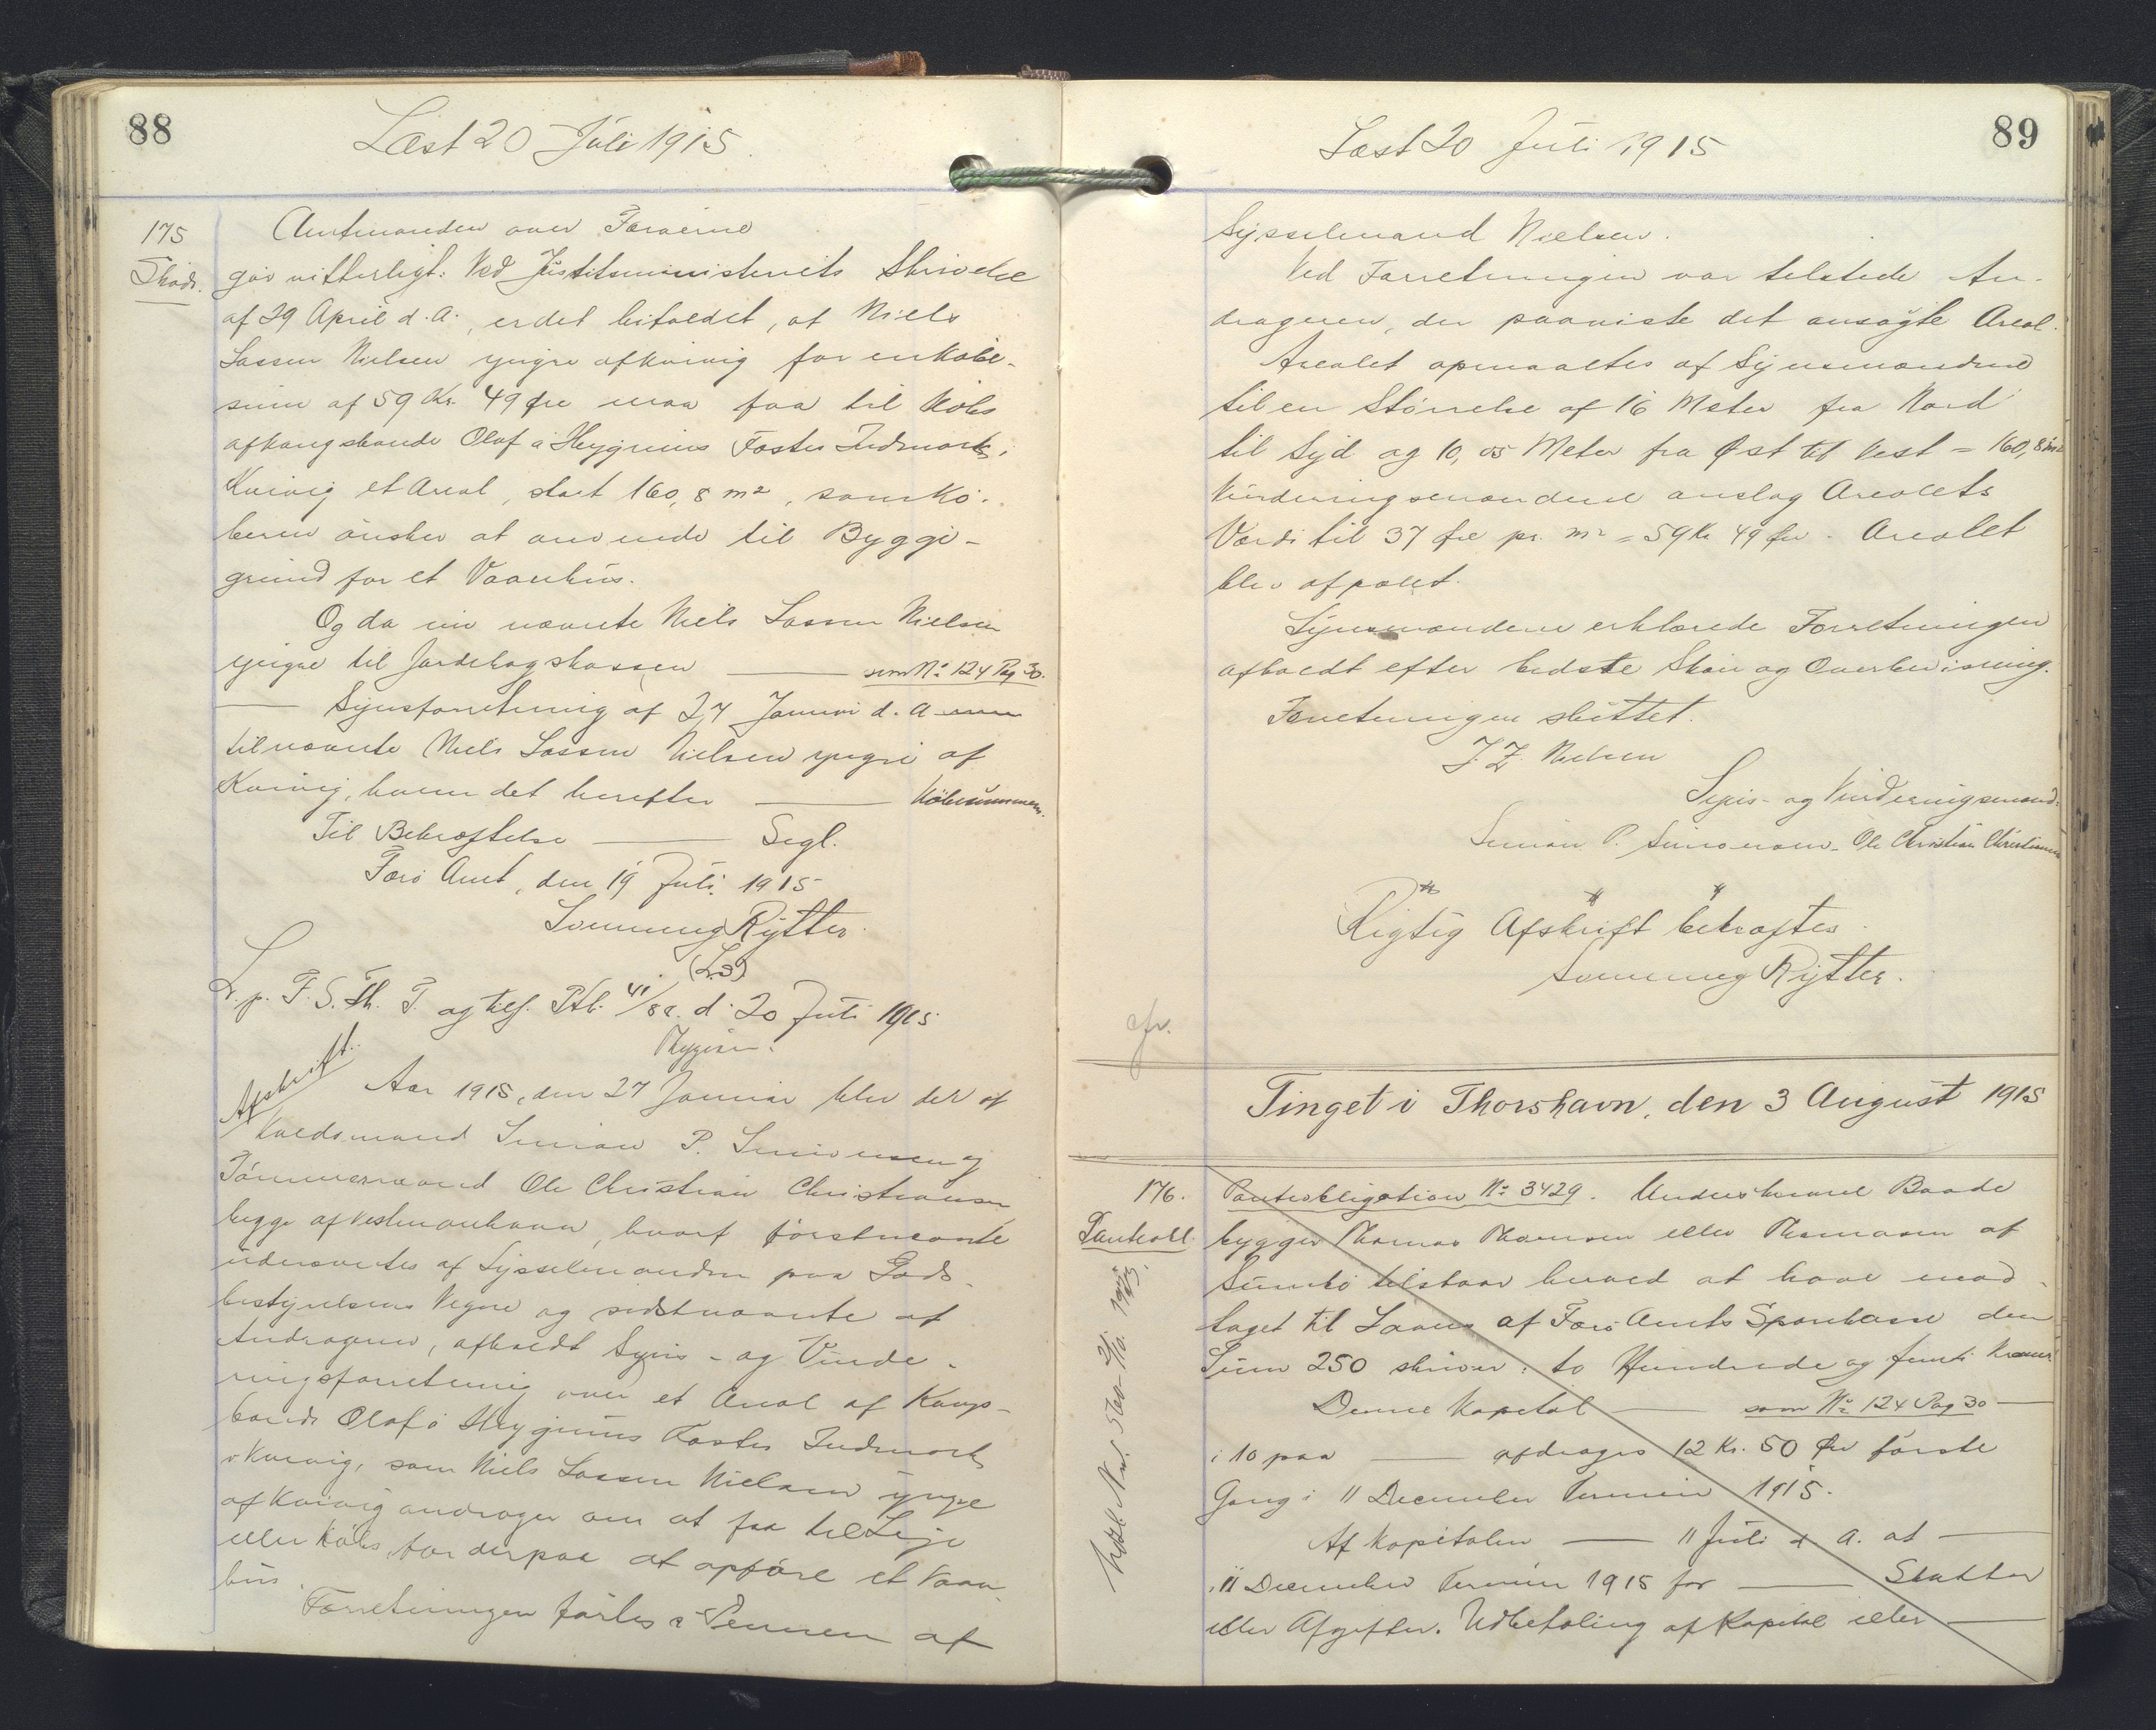 88
Læst 20 Juli 1915
175
Skøde.
Amtmanden over Færøerne
gør vitterligt: Ved Justitsministeriets Skrivelse
af 29 April d. A., er det bifaldet, at Niels
Lassen Nielsen yngre af Kvivig for en Købe-
sum af 59 Kr. 49 Øre maa faa til Købs
af Kongsbonde Olaf á Heygnum's Fæste Indmark i
Kvivig et Areal, stort 160,8 m², som Kø-
beren ønsker at anvende til Bygge-
grund for et Vaanhus.
Og da nu nævnte Niels Lassen Nielsen
yngre til Jordebogskassen ——— som No 124 Pag 30.
——— Synsforretning af 27 Januar d. A
tilnævnte Niels Lassen Nielsen yngre af
Kvivig, hvem det herefter ——— Købesummen.
Til Bekræftelse ——— Segl.
Færø Amt, den 19 Juli 1915
Svenning Rytter.
(L.S)
L. p. F. S. Th. T. og tilf. Ptb. 41/82. d. 20 Juli 1915
Afskrift.
Aar 1915, den 27 Januar blev der af
Simian P. Simonsen og
Tømmermand Ole Christian Christiansen
begge af Vestmanhavn, hvoraf førstnævnte
udnævntes af Sysselmanden paa Gods-
bestyrelsens Vegne og sidstnævnte af
Andrageren, afholdt Syns- og Vurde-
ringsforretning over et Areal af Kongs-
bonde Olaf á Heygnums Fæstes Indmark
i Kvivig, som Niels Lassen Nielsen yngre
af Kvivig andrager om at faa til Leje
eller Købs, for derpaa at opføre et Vaan-
hus.
Forretningen førtes i Pennen af
89
Læst 20 Juli 1915
Sysselmand Nielsen.
Ved Forretningen var tilstede An-
drageren, der paaviste det ansøgte Areal.
Arealet opmaaltes af Synsmændene
til en Størrelse af 16 Meter fra Nord
til Syd og 10,05 Meter fra Øst til Vest = 160,8 m²
Vurderingsmændene anslog Arealets
Værdi til 37 Øre pr. m² = 59 Kr 49 Øre. Arealet
blev afpælet.
Synsmændene erklærede Forretningen
afholdt efter bedste Skøn og Overbevisning.
Forretningen sluttet.
J. Z. Nielsen
Syns- og Vurderingsmænd:
Simian P. Simonsen. Ole Christian Christiansen
Rigtig Afskrift bekræftes.
Svenning Rytter.
cfr.
Tinget i Thorshavn, den 3 August 1915
176.
Pantobl.
Pantobligation No 3429. Underskrevne Baade
bygger Thomas Thomsen eller Thomasen af
Sumbø tilstaar herved at have mod-
taget til Laans af Færø Amts Sparekasse den
Sum 250 skriver: to Hundrede og femti Kroner.
Denne Kapital ——— som No 124 Pag 30 ——
i 10 paa ——— afdrages 12 Kr. 50 Øre første
Gang i 11 December Termin 1915.
Af Kapitalen ——— 11 Juli d. A. at ———
i 11 December Termin 1915 for ——— Skatter
eller Afgifter. Udbetaling af Kapital eller ———